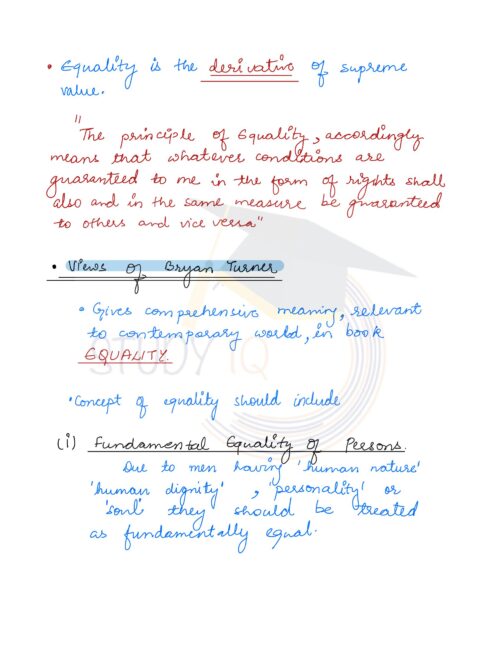 • Equality is the derivative of supreme
value.
"The principle of Equality, accordingly
means that whatever conditions are
guaranteed to me in the form of rights shall
also and in the same measure be guaranteed
to others and vice versa"
• Views of Bryan Turner
• Gives comprehensive meaning, relevant
to contemporary world, in book
EQUALITY.
STUDY IQ
• Concept of equality should include
(i) Fundamental Equality of Persons.
Due to men having 'human nature'
'human dignity', 'personality' or
'soul' they should be treated
as fundamentally equal.